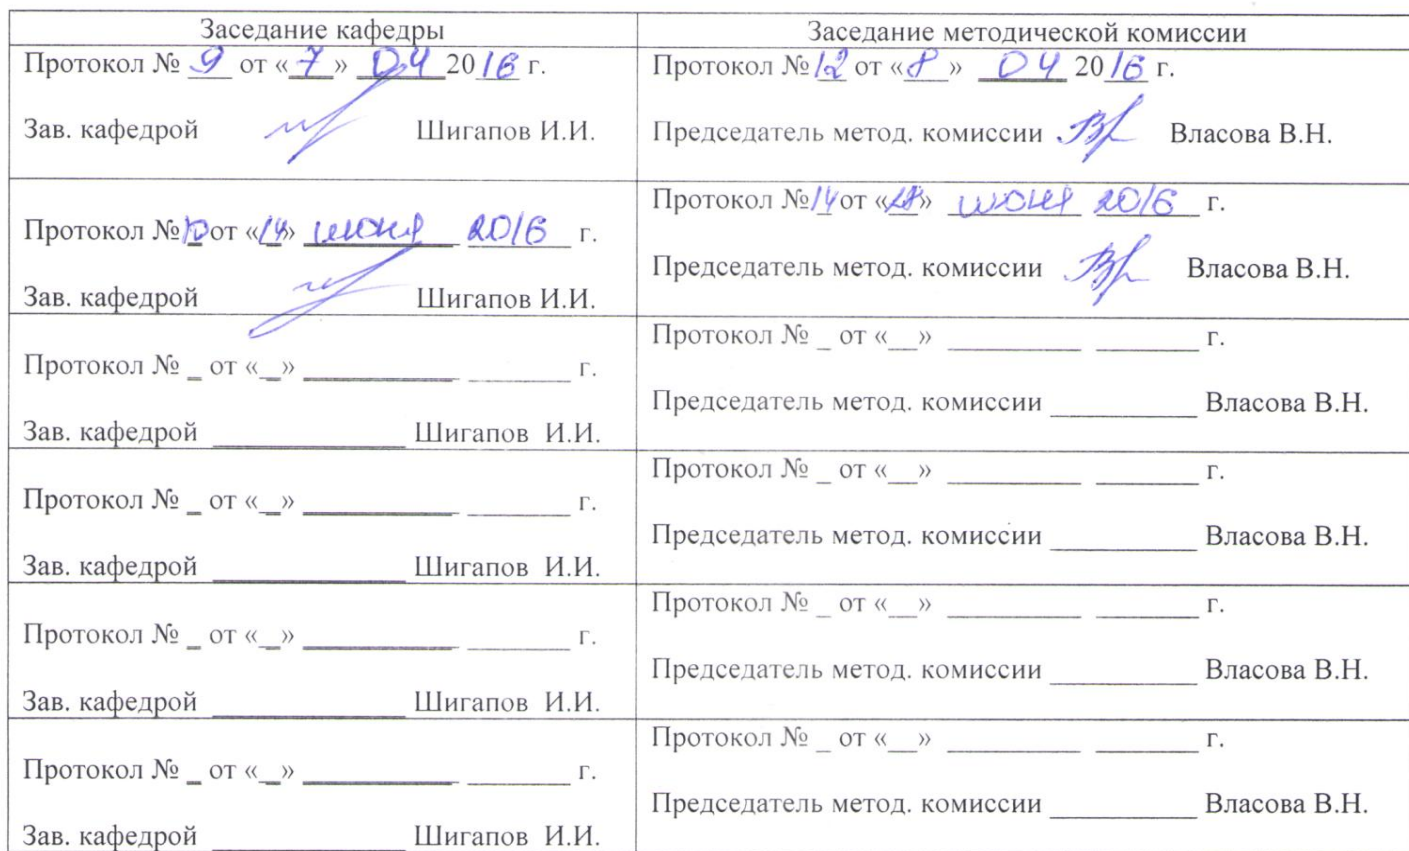 Заседание кафедры
Заседание методической комиссии
Протокол № 9 от «7» 04 2016 г.
Зав. кафедрой Шигапов И.И.
Протокол № 12 от «8» 04 2016 г.
Председатель метод. комиссии Власова В.Н.
Протокол № 10 от «14» июня 2016 г.
Зав. кафедрой Шигапов И.И.
Протокол № 14 от « » июня 2016 г.
Председатель метод. комиссии Власова В.Н.
Протокол № _ от «_» ___________ ________ г.
Зав. кафедрой ______________ Шигапов И.И.
Протокол № _ от «__» __________ ________ г.
Председатель метод. комиссии ___________ Власова В.Н.
Протокол № _ от «_» ___________ ________ г.
Зав. кафедрой ______________ Шигапов И.И.
Протокол № _ от «__» __________ ________ г.
Председатель метод. комиссии ___________ Власова В.Н.
Протокол № _ от «_» ___________ ________ г.
Зав. кафедрой ______________ Шигапов И.И.
Протокол № _ от «__» __________ ________ г.
Председатель метод. комиссии ___________ Власова В.Н.
Протокол № _ от «_» ___________ ________ г.
Зав. кафедрой ______________ Шигапов И.И.
Протокол № _ от «__» __________ ________ г.
Председатель метод. комиссии ___________ Власова В.Н.